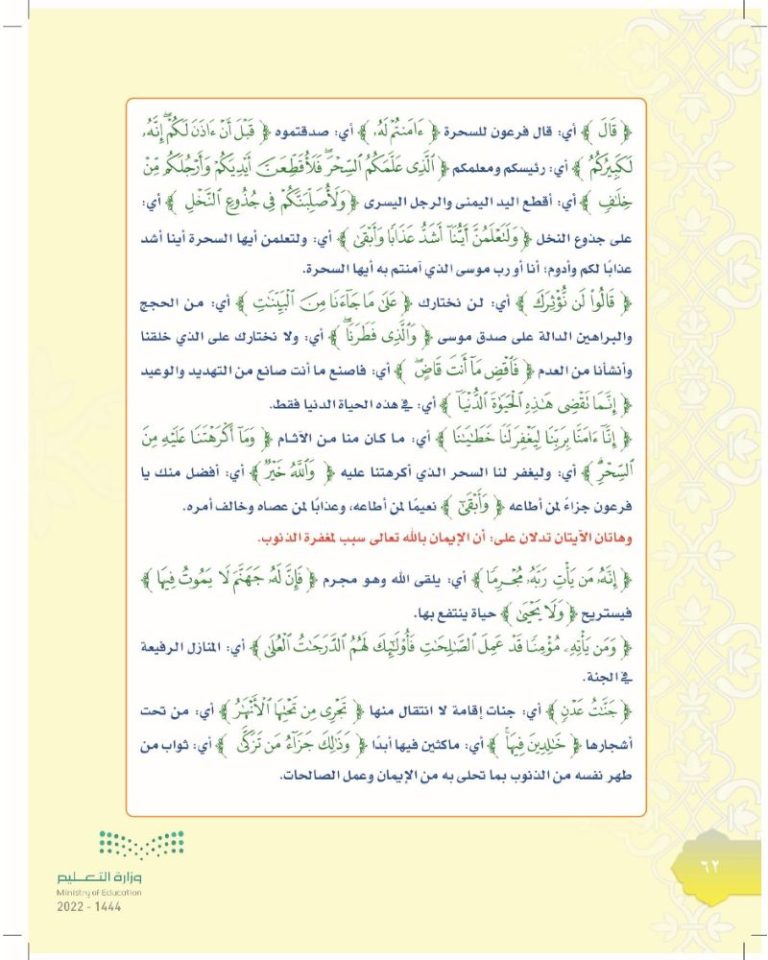 ﴿ قَالَ ﴾ أي: قال فرعون للسحرة ﴿ ءَامَنتُمْ لَهُۥ ﴾ أي: صدقتموه ﴿ قَبْلَ أَنْ ءَاذَنَ لَكُمْ ۖ إِنَّهُۥ
لَكَبِيرُكُمُ ﴾ أي: رئيسكم ومعلمكم ﴿ ٱلَّذِى عَلَّمَكُمُ ٱلسِّحْرَ ۖ فَلَأُقَطِّعَنَّ أَيْدِيَكُمْ وَأَرْجُلَكُم مِّنْ
خِلَـٰفٍ ﴾ أي: أقطع اليد اليمنى والرجل اليسرى ﴿ وَلَأُصَلِّبَنَّكُمْ فِى جُذُوعِ ٱلنَّخْلِ ﴾ أي:
على جذوع النخل ﴿ وَلَتَعْلَمُنَّ أَيُّنَآ أَشَدُّ عَذَابًا وَأَبْقَىٰ ﴾ أي: ولتعلمن أيها السحرة أينا أشد
عذابًا لكم وأدوم: أنا أو رب موسى الذي آمنتم به أيها السحرة.
﴿ قَالُوا۟ لَن نُّؤْثِرَكَ ﴾ أي: لن نختارك ﴿ عَلَىٰ مَا جَآءَنَا مِنَ ٱلْبَيِّنَـٰتِ ﴾ أي: من الحجج
والبراهين الدالة على صدق موسى ﴿ وَٱلَّذِى فَطَرَنَا ۖ ﴾ أي: ولا نختارك على الذي خلقنا
وأنشأنا من العدم ﴿ فَٱقْضِ مَآ أَنتَ قَاضٍ ۖ ﴾ أي: فاصنع ما أنت صانع من التهديد والوعيد
﴿ إِنَّمَا تَقْضِى هَـٰذِهِ ٱلْحَيَوٰةَ ٱلدُّنْيَآ ﴾ أي: في هذه الحياة الدنيا فقط.
﴿ إِنَّآ ءَامَنَّا بِرَبِّنَا لِيَغْفِرَ لَنَا خَطَـٰيَـٰنَا ﴾ أي: ما كان منا من الآثام ﴿ وَمَآ أَكْرَهْتَنَا عَلَيْهِ مِنَ
ٱلسِّحْرِ ۗ ﴾ أي: وليغفر لنا السحر الذي أكرهتنا عليه ﴿ وَٱللَّهُ خَيْرٌ ﴾ أي: أفضل منك يا
فرعون جزاءً لمن أطاعه ﴿ وَأَبْقَىٰٓ ﴾ نعيمًا لمن أطاعه، وعذابًا لمن عصاه وخالف أمره.
وهاتان الآيتان تدلان على: أن الإيمان بالله تعالى سبب لمغفرة الذنوب.
﴿ إِنَّهُۥ مَن يَأْتِ رَبَّهُۥ مُجْرِمًا ﴾ أي: يلقى الله وهو مجرم ﴿ فَإِنَّ لَهُۥ جَهَنَّمَ لَا يَمُوتُ فِيهَا ﴾
فيستريح ﴿ وَلَا يَحْيَىٰ ﴾ حياة ينتفع بها.
﴿ وَمَن يَأْتِهِۦ مُؤْمِنًا قَدْ عَمِلَ ٱلصَّـٰلِحَـٰتِ فَأُو۟لَـٰٓئِكَ لَهُمُ ٱلدَّرَجَـٰتُ ٱلْعُلَىٰ ﴾ أي: المنازل الرفيعة
في الجنة.
﴿ جَنَّـٰتُ عَدْنٍ ﴾ أي: جنات إقامة لا انتقال منها ﴿ تَجْرِى مِن تَحْتِهَا ٱلْأَنْهَـٰرُ ﴾ أي: من تحت
أشجارها ﴿ خَـٰلِدِينَ فِيهَا ۚ ﴾ أي: ماكثين فيها أبدًا ﴿ وَذَٰلِكَ جَزَآءُ مَن تَزَكَّىٰ ﴾ أي: ثواب من
طهر نفسه من الذنوب بما تحلى به من الإيمان وعمل الصالحات.
وزارة التعليم
Ministry of Education
2022 - 1444
٦٢